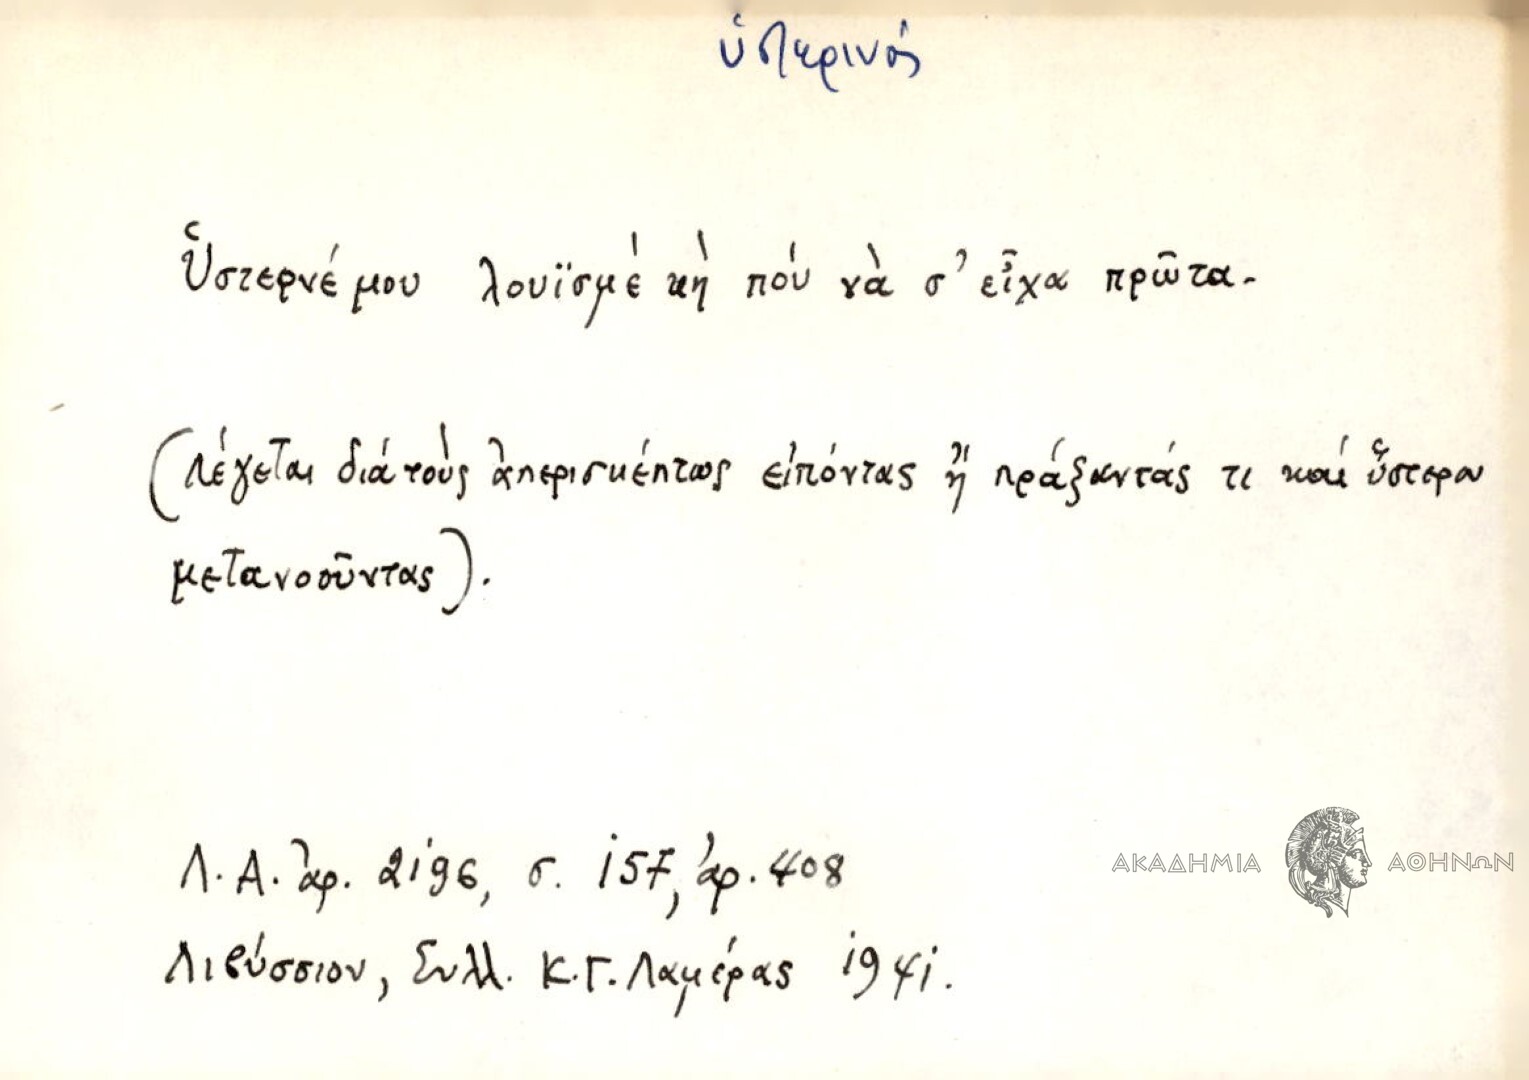 ὑστερινός
Ὑστερνέ μου λουϊσμέ κὴ πού νὰ σ' εἶχα πρῶτα.
(Λέγεται διά τοὺς ἀπερισκέπτως εἰπόντας ἢ πράξαντάς τι καί ὕστερον
μετανοοῦντας).
Λ.Α. ἀρ. 2196, σ. 157, ἀρ. 408
ΑΚΑΔΗΜΙΑ ΑΘΗΝΩΝ
Λιβύσσιον, Συλλ. Κ.Γ. Λαμέρας 1941.